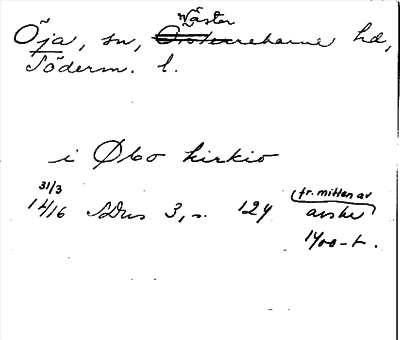 Väster
Öja, sn, Oster­rekarne hd,
Söderm. l.
i Øbo kirkio
31/3
1416 SDns 3, s. 124 fr. mitten av
avskr
1400-t.